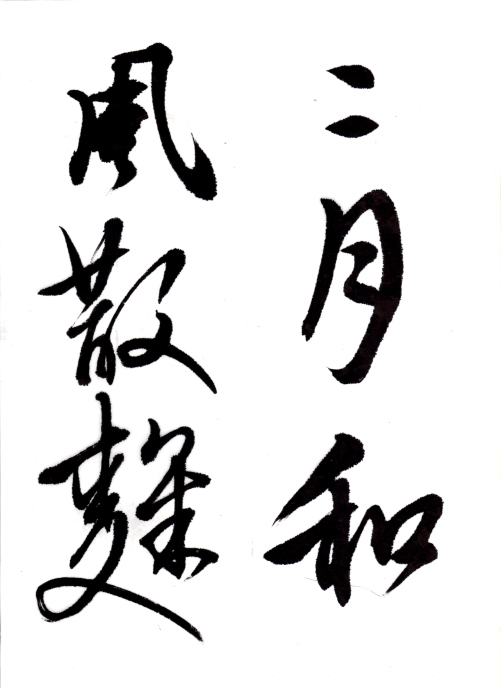 二月和
風散麴